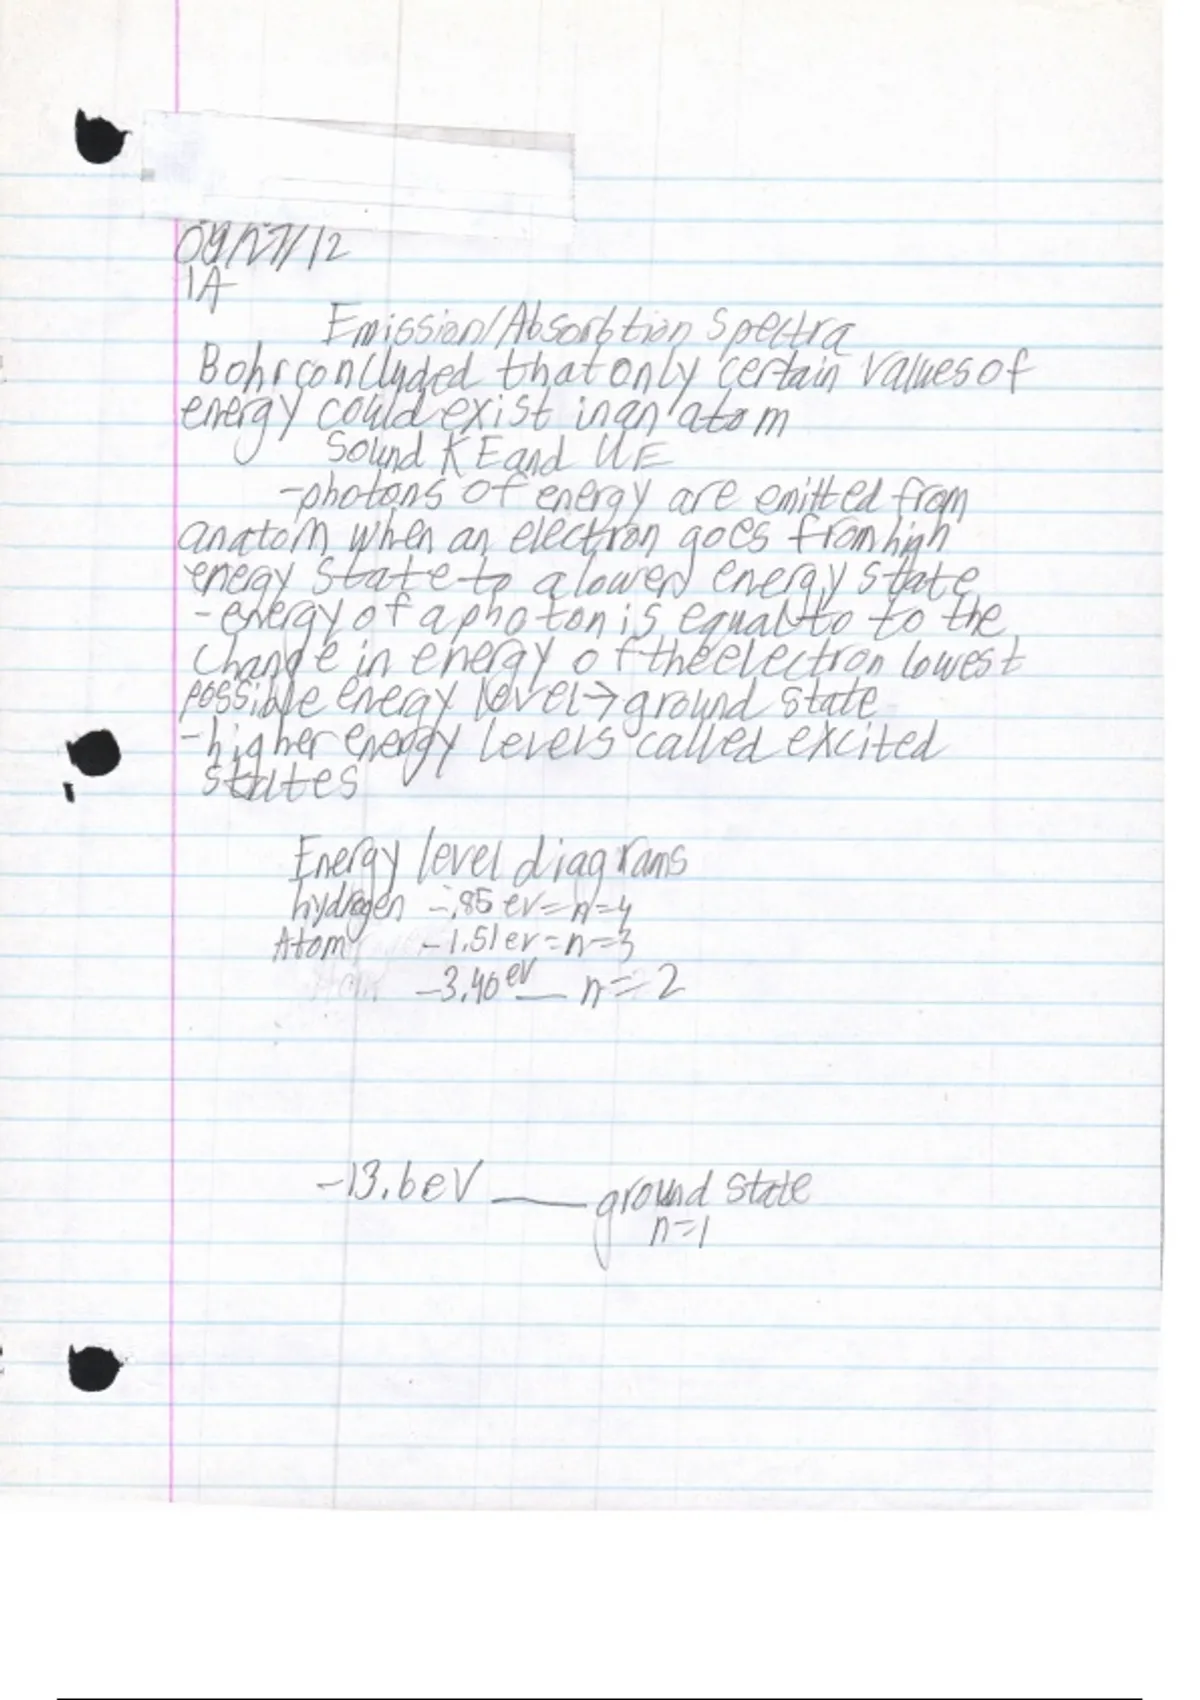 09/27/12
1A
Emission/Absorbtion Spectra
Bohr concluded that only certain values of
energy could exist in an atom
Sound KE and UE
-photons of energy are emitted from
an atom when an electron goes from high
enegy state to a lower energy state
- energy of a photon is equal to to the
change in energy of the electron lowest
possible energy level→ground state
-higher energy levels called excited
states
Energy level diagrams
hydrogen -.85 ev=n=4
Atom -1.51ev=n=3
-3.40 ev n=2
-13.6eV ground state
n=1